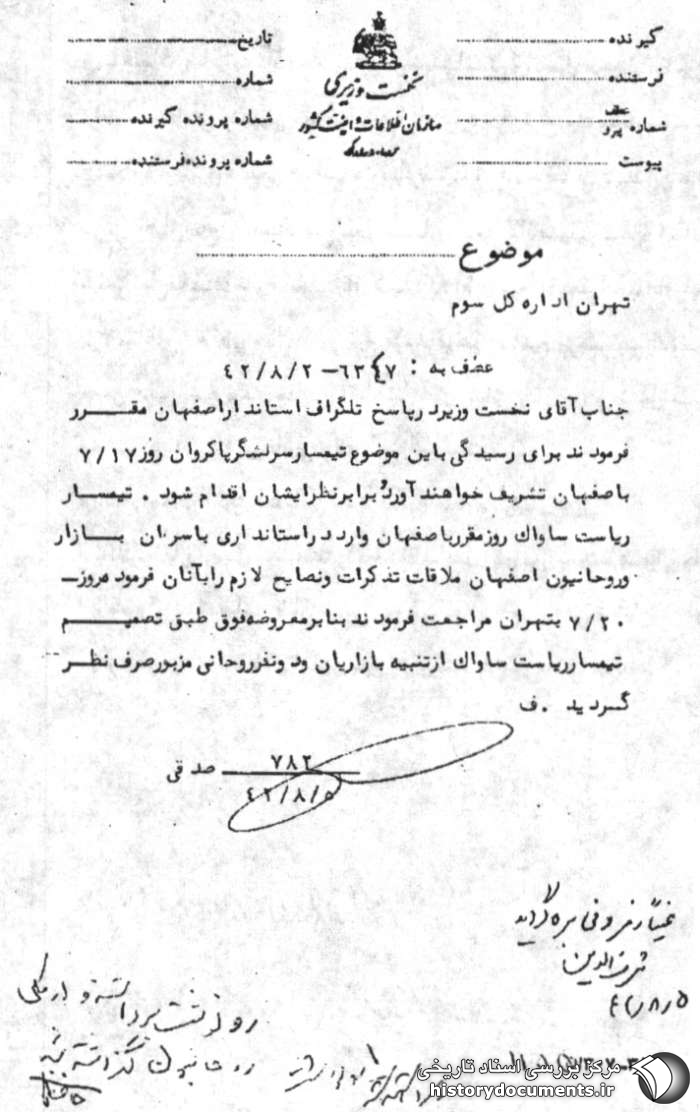 گیرنده
فرستنده
عطف
شماره پیرو
پیوست
نخست وزیری
سازمان اطلاعات و امنیت کشور
س.ا.و.ا.ک
تاریخ
شماره
شماره پرونده گیرنده
شماره پرونده فرستنده
موضوع
تهران اداره کل سوم
عطف به : ۶۳۴۷-۴۲/۸/۲
جناب آقای نخست وزیر در پاسخ تلگراف استاندار اصفهان مقرر
فرمودند برای رسیدگی باین موضوع تیمسار سرلشگر پاکروان روز ۷/۱۷
باصفهان تشریف خواهند آورد و برابر نظر ایشان اقدام شود . تیمسار
ریاست ساواک روز مقرر باصفهان وارد در استانداری با سران بازار
و روحانیون اصفهان ملاقات تذکرات و نصایح لازم را بآنان فرمود و روز
۷/۲۰ بتهران مراجعت فرمودند بنا بمعروضه فوق طبق تصمیم
تیمسار ریاست ساواک از تنبیه بازاریان و دو نفر روحانی مزبور صرف نظر
گردید . ف
۷۸۲ صدقی
۴۲/۸/۵
شرف الدین
مرکز بررسی اسناد تاریخی
historydocuments.ir